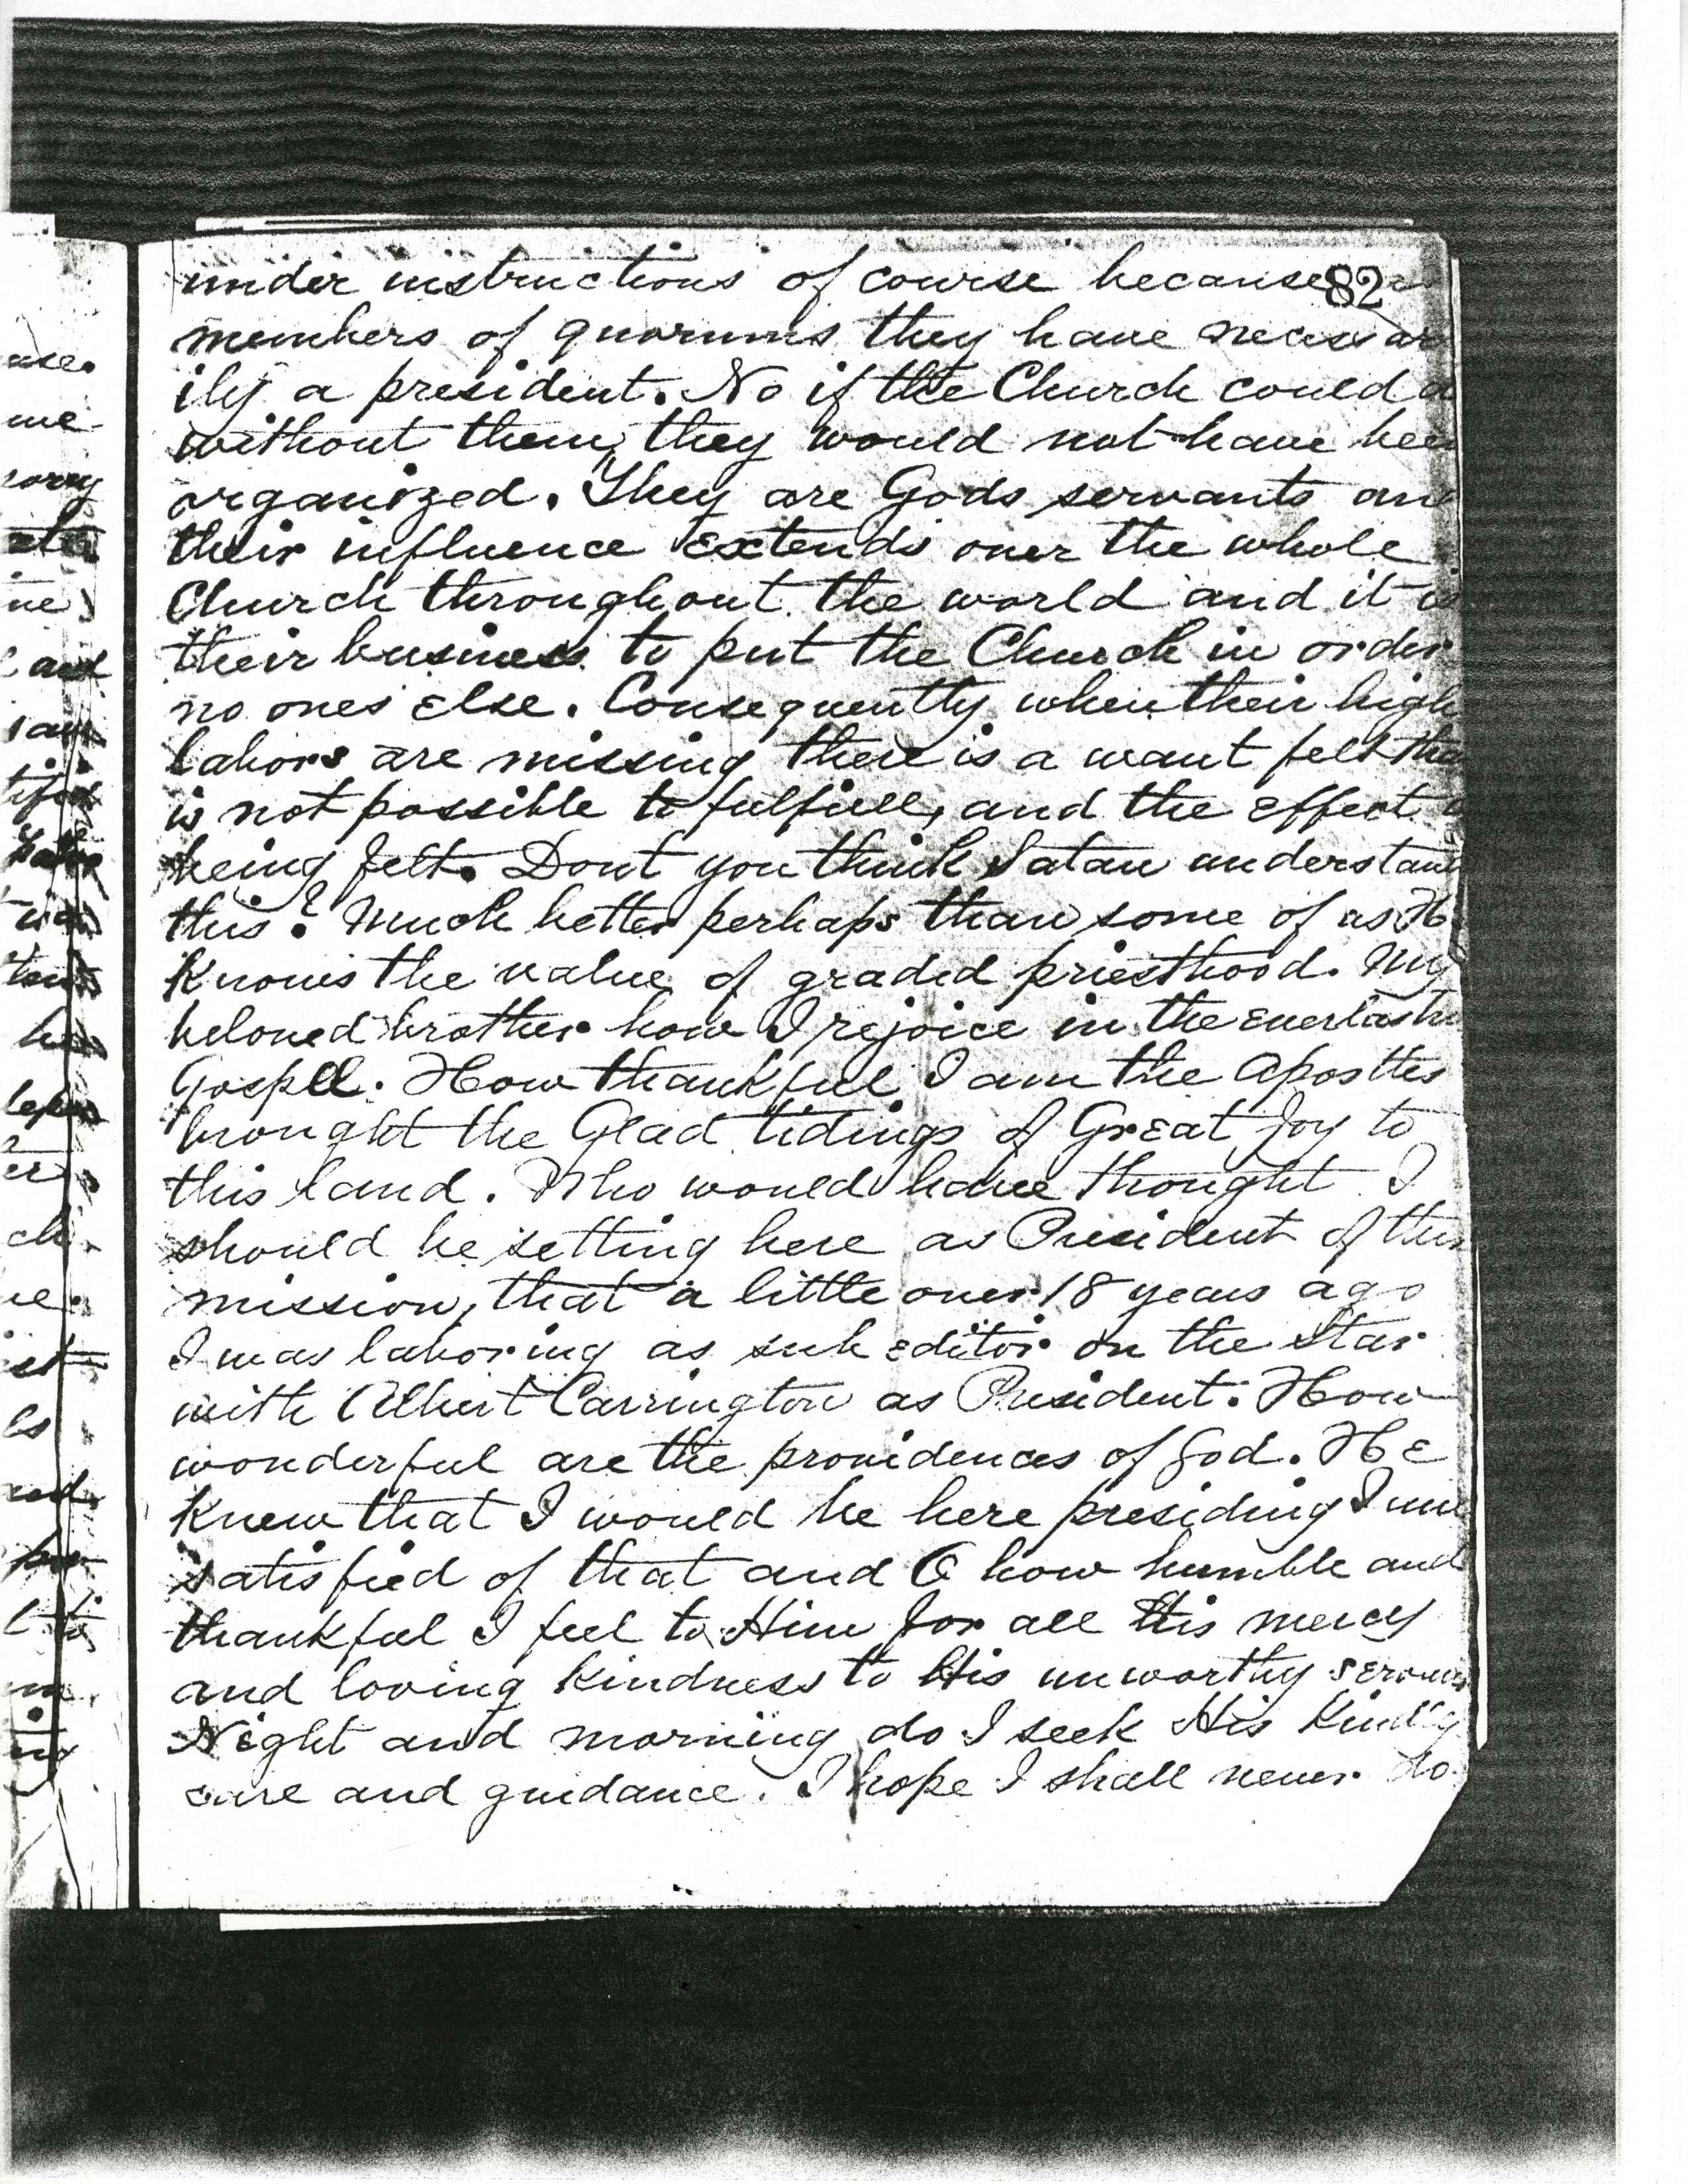 under instructions of course because 82
members of quorums they have necessar
ily a president. No if the Church could
without them, they would not have bee
organized. They are Gods servants an
their influence extends over the whole
Church throughout the world and it is
their business to put the Church in order
no ones else. Consequently when their high
labors are missing there is a want felt tha
is not possible to fulfill, and the effect
being felt. Dont you think Satan understand
this? Much better perhaps than some of us He
Knows the value of graded priesthood. My
beloved brother how I rejoice in the everlastin
Gospell. How thankful I am the Apostles
brought the Glad tidings of Great Joy to
this land. Who would have thought I
should be setting here as President of this
mission, that a little over 18 years ago
I was laboring as sub editor on the Star
with Albert Carrington as President. How
wonderful are the providences of God. He
Knew that I would be here presiding I am
satisfied of that and O how humble and
thankful I feel to Him for all His mercy
and loving kindness to His unworthy servan
Night and morning do I seek His Kindly
care and guidance. I hope I shall never do
use.
me
sorry
ne
and
ch